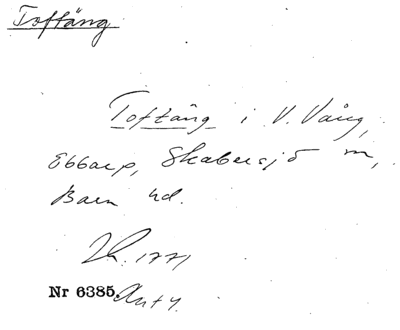 Toftäng
Toftäng i V. Vång,
Ebbarp, Skabersjö m,
Bara hd.
Nr 6385.